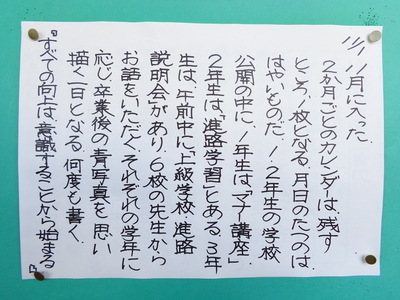 11/1、11月に入った。
2か月ごとのカレンダーは、残す
ところ1枚となる。月日のたつのは、
はやいものだ。1・2年生の学校
公開の中に、1年生は、「マナー講座」、
2年生は、「進路学習」とある。3年
生は、午前中に「上級学校、進路
説明会」があり、6校の先生から
お話をいただく。それぞれの学年に
応じ、卒業後の青写真を思い
描く一日となる。何度も書く。
『すべての向上は、意識することから始まる』